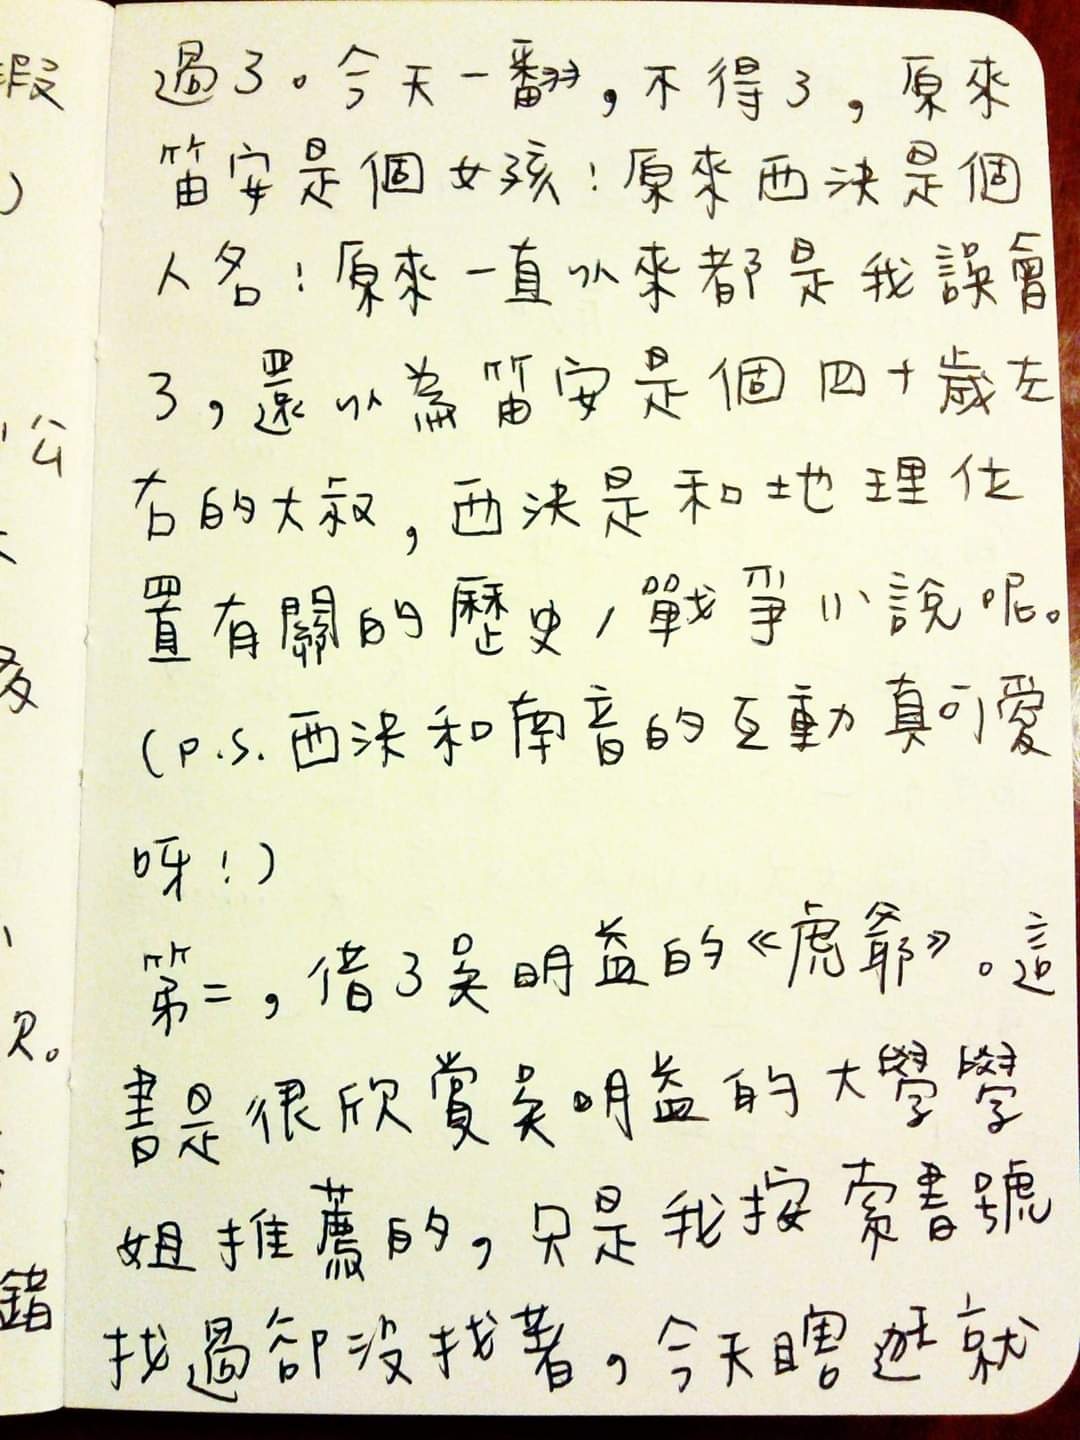 過了。今天一翻,不得了,原來
笛安是個女孩!原來西決是個
人名!原來一直以來都是我誤會
了,還以為笛安是個四十歲左
右的大叔,西決是和地理位
置有關的歷史/戰爭小說呢。
(p.s.西決和南音的互動真可愛
呀!)
第二,借了吳明益的《虎爺》。這
書是很欣賞吳明益的大學學
姐推薦的,只是我按索書號
找過卻沒找著,今天瞎逛就
假
)
公
次。
錯